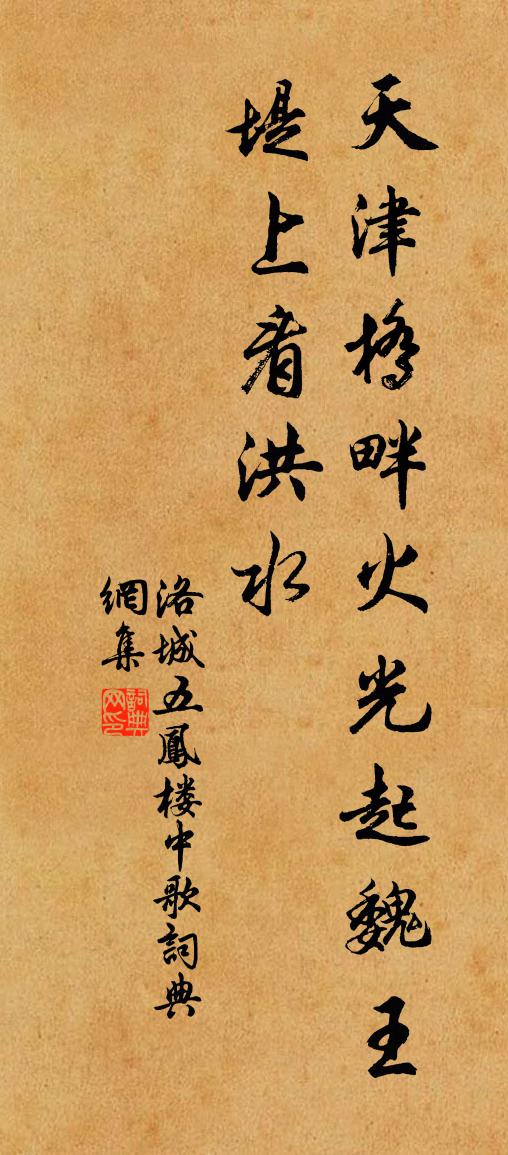 天津橋畔火光起魏王
堤上看洪水
洛城五鳳樓中歌詞典
網集
詞典
网印